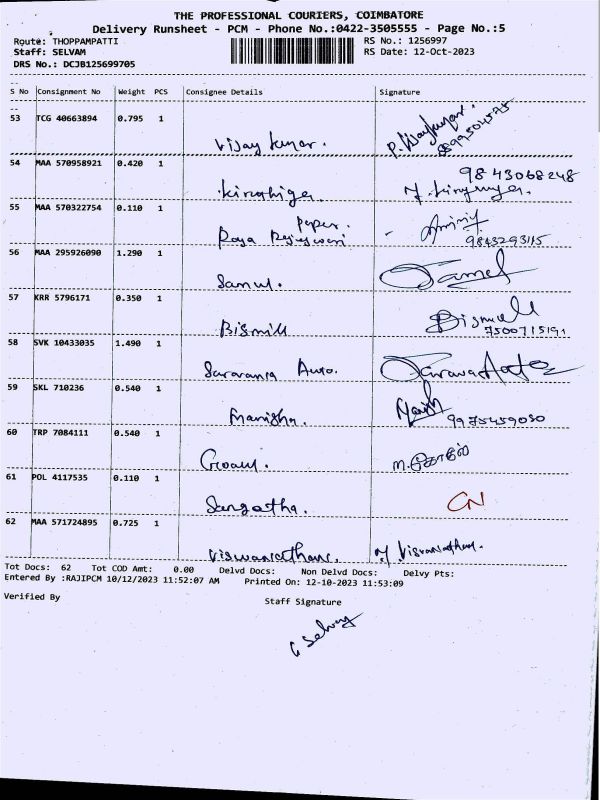 THE PROFESSIONAL COURIERS, COIMBATORE
Delivery Runsheet - PCM - Phone No.:0422-3505555 - Page No.:5
Route: THOPPAMPATTI RS No.: 1256997
Staff: SELVAM RS Date: 12-Oct-2023
DRS No.: DCJB125699705
S No Consignment No Weight PCS Consignee Details Signature
53 TCG 40663894 0.795 1
Vijay kumar. P. Vijaykumar.
54 MAA 570958921 0.420 1 9843068248
55 MAA 570322754 0.110 1
paper.
Raja Rajeswari 9843293115
56 MAA 295926090 1.290 1
Samul. Samel
57 KRR 5796171 0.350 1
Bismill Bismill
7500715191
58 SVK 10433035 1.490 1
Saravana Auto.
59 SKL 710236 0.540 1
Manisha. 9975459080
60 TRP 7084111 0.540 1
61 POL 4117535 0.110 1
Sangatha. CN
62 MAA 571724895 0.725 1
Viswanathan. Viswanathan.
Tot Docs: 62 Tot COD Amt: 0.00 Delvd Docs: Non Delvd Docs: Delvy Pts:
Entered By :RAJIPCM 10/12/2023 11:52:07 AM Printed On: 12-10-2023 11:53:09
Verified By Staff Signature
G Selvam